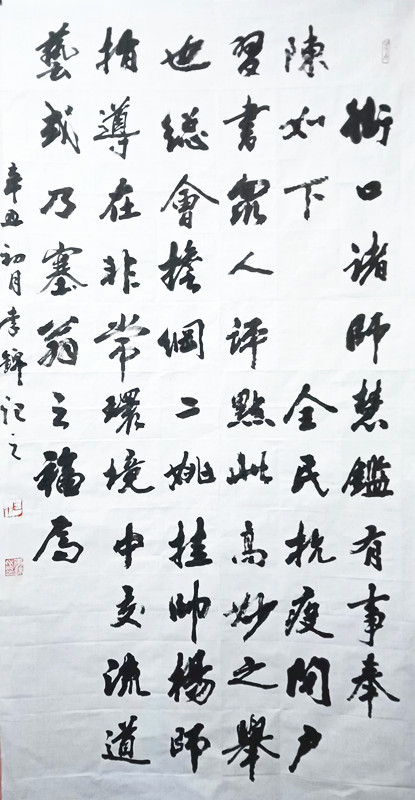 街口诸師慧鑑有事奉
陳如下 全民抗疫閉户
習書眾人評點此高妙之舉
也總會擔綱二姚挂帥楊師
指導在非常環境中交流道
藝或乃塞翁之福焉
辛丑初月李錦記之